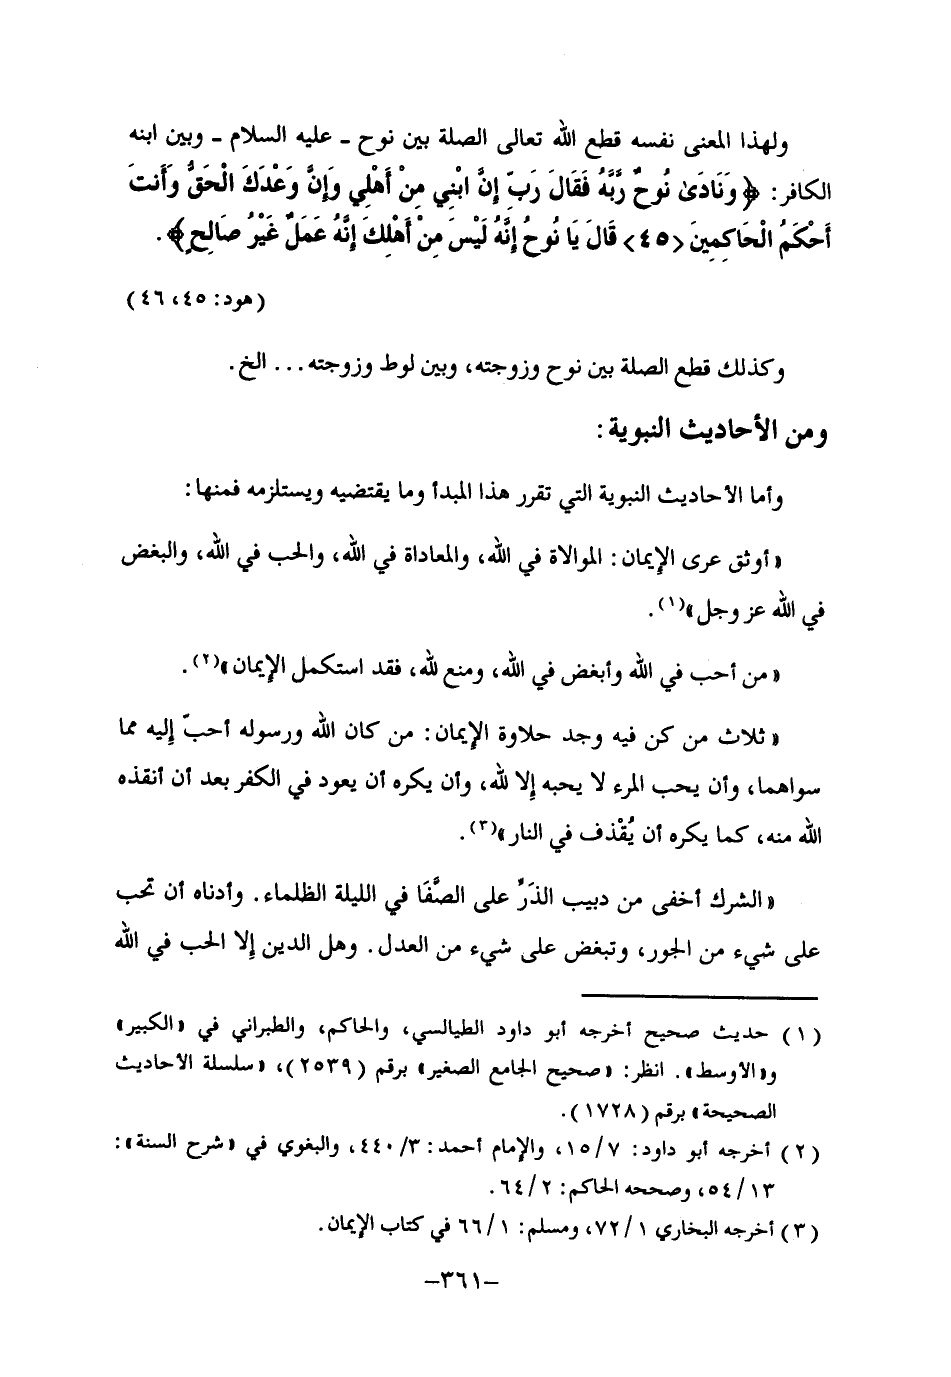 ولهذا المعنى نفسه قطع الله تعالى الصلة بين نوح ـ عليه السلام ـ وبين ابنه
الكافر: ﴿وَنَادَىٰ نُوحٌ رَّبَّهُ فَقَالَ رَبِّ إِنَّ ابْنِي مِنْ أَهْلِي وَإِنَّ وَعْدَكَ الْحَقُّ وَأَنتَ
أَحْكَمُ الْحَاكِمِينَ <٤٥> قَالَ يَا نُوحُ إِنَّهُ لَيْسَ مِنْ أَهْلِكَ إِنَّهُ عَمَلٌ غَيْرُ صَالِحٍ﴾.
(هود: ٤٥، ٤٦)
وكذلك قطع الصلة بين نوح وزوجته، وبين لوط وزوجته... الخ.
ومن الأحاديث النبوية:
وأما الأحاديث النبوية التي تقرر هذا المبدأ وما يقتضيه ويستلزمه فمنها:
«أوثق عرى الإيمان: الموالاة في الله، والمعاداة في الله، والحب في الله، والبغض
في الله عز وجل»(١).
«من أحب في الله وأبغض في الله، ومنع لله، فقد استكمل الإيمان»(٢).
«ثلاث من كن فيه وجد حلاوة الإيمان: من كان الله ورسوله أحبّ إليه مما
سواهما، وأن يحب المرء لا يحبه إلا لله، وأن يكره أن يعود في الكفر بعد أن أنقذه
الله منه، كما يكره أن يُقْذف في النار»(٣).
«الشرك أخفى من دبيب الذَرِّ على الصَّفَا في الليلة الظلماء. وأدناه أن تحب
على شيء من الجور، وتبغض على شيء من العدل. وهل الدين إلا الحب في الله
(١) حديث صحيح أخرجه أبو داود الطيالسي، والحاكم، والطبراني في «الكبير»
و«الأوسط». انظر: «صحيح الجامع الصغير» برقم (٢٥٣٩)، «سلسلة الأحاديث
الصحيحة» برقم (١٧٢٨).
(٢) أخرجه أبو داود: ١٥/٧، والإمام أحمد: ٤٤٠/٣، والبغوي في «شرح السنة»:
٥٤/١٣، وصححه الحاكم: ٦٤/٢.
(٣) أخرجه البخاري ٧٢/١، ومسلم: ٦٦/١ في كتاب الإيمان.
–٣٦١–